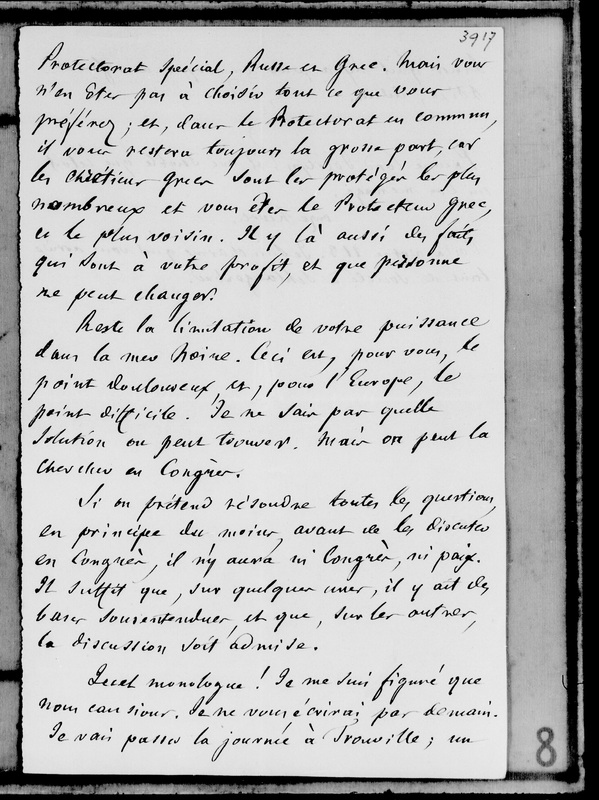 3917
Protectorat spécial, Russe et Grec. Mais vous
n'en êtes pas à choisir tout ce que vous
préférez ; et, dans le Protectorat en commun,
il vous restera toujours la grosse part, car
les chrétiens Grecs sont les protégés les plus
nombreux et vous êtes le Protecteur Grec,
et le plus voisin. Il y là aussi des faits
qui sont à votre profit, et que personne
ne peut changer.
Reste la limitation de votre puissance
dans la mer Noire. Ceci est, pour vous, le
point douloureux, et, pour l'Europe, le
point difficile. Je ne sais pas quelle
solution on peut trouver. Mais on peut la
chercher en Congrès.
Si on prétend résoudre toutes les questions,
en principe du moins, avant de les discuter
en Congrès, il n'y aura ni Congrès, ni paix.
Il suffit que, sur quelques unes, il y ait des
bases sousentendues, et que, sur les autres,
la discussion soit admise.
Quel monologue ! Je me suis figuré que
nous causions. Je ne vous écrirai pas demain.
Je vais passer la journée à Trouville ; un
8